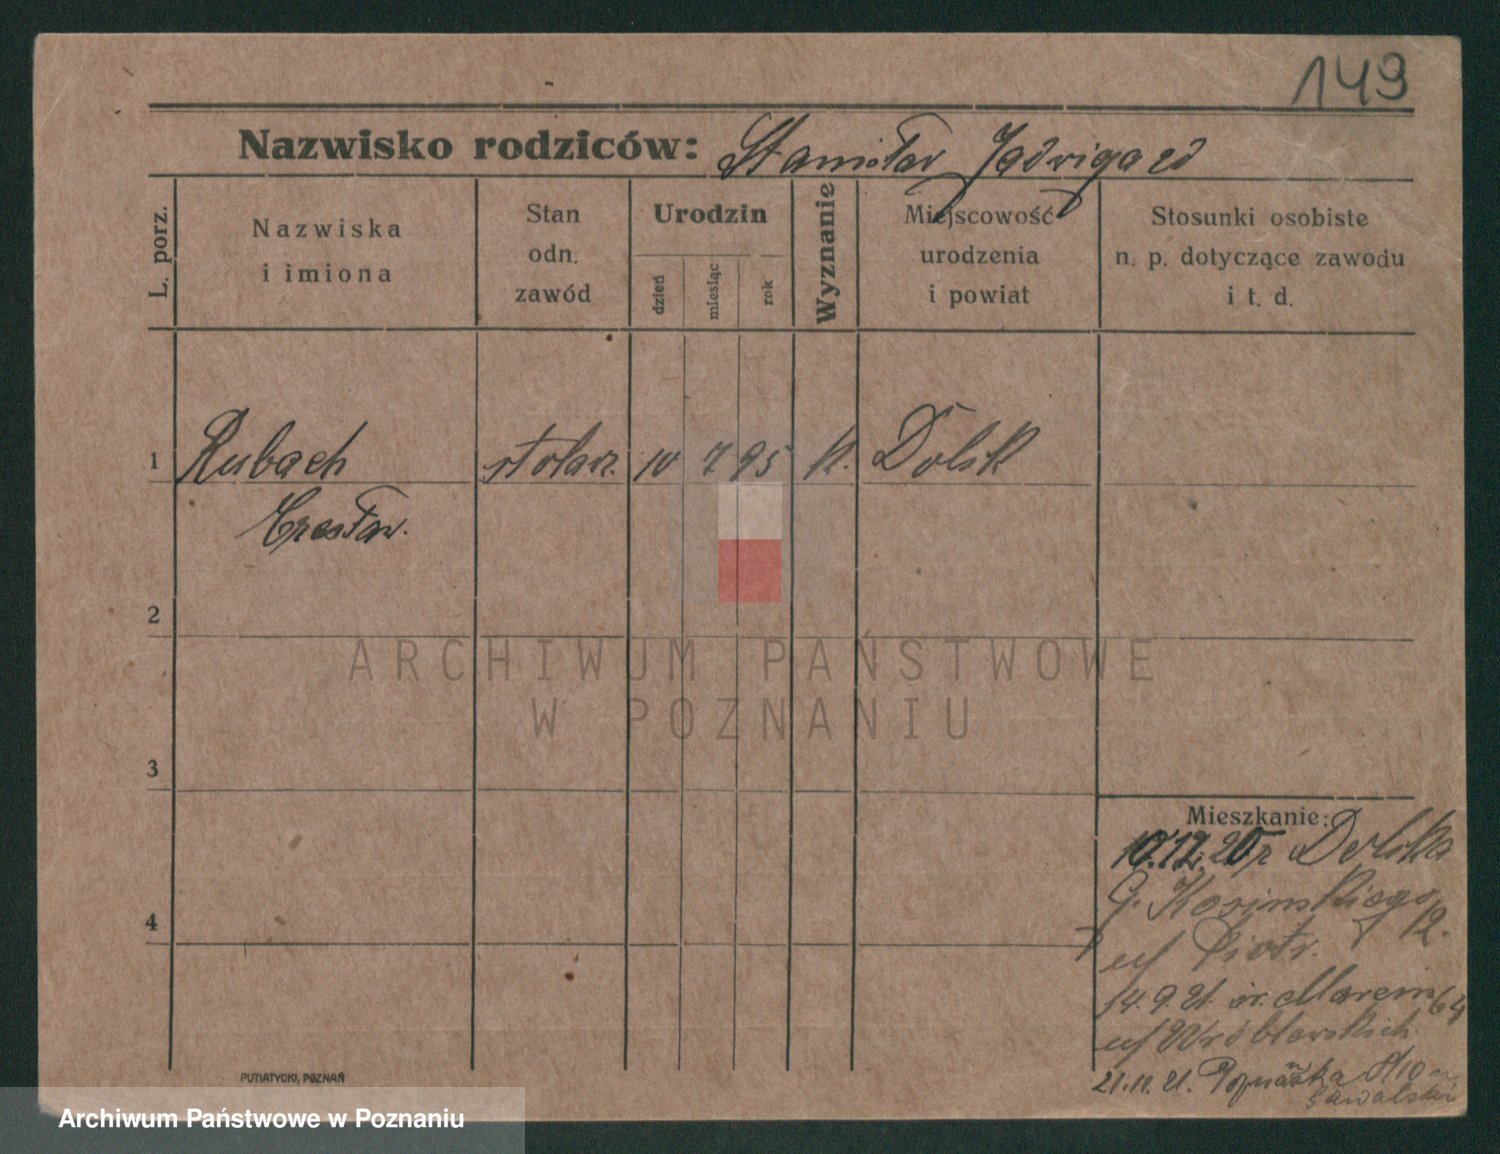 149
Nazwisko rodziców: Stanisław Jadwiga
L. porz.
Nazwiska
i imiona
Stan
odn.
zawód
Urodzin
dzień
miesiąc
rok
Wyznanie
Miejscowość
urodzenia
i powiat
Stosunki osobiste
n. p. dotyczące zawodu
i t. d.
1 Rubach stolarz 10 7 95 k. Dolsk
Czesław.
2
3
Mieszkanie:
10.12.20 z Dolska
G. Kosinskiego
12.
u/ Piotr.
4
14.9.21. św. Marcin 64
u/ Wróblewskich
21.11.21. Poznańska
Gawalski
PUTIATYCKI, POZNAŃ
ARCHIWUM PAŃSTWOWE
W POZNANIU
Archiwum Państwowe w Poznaniu